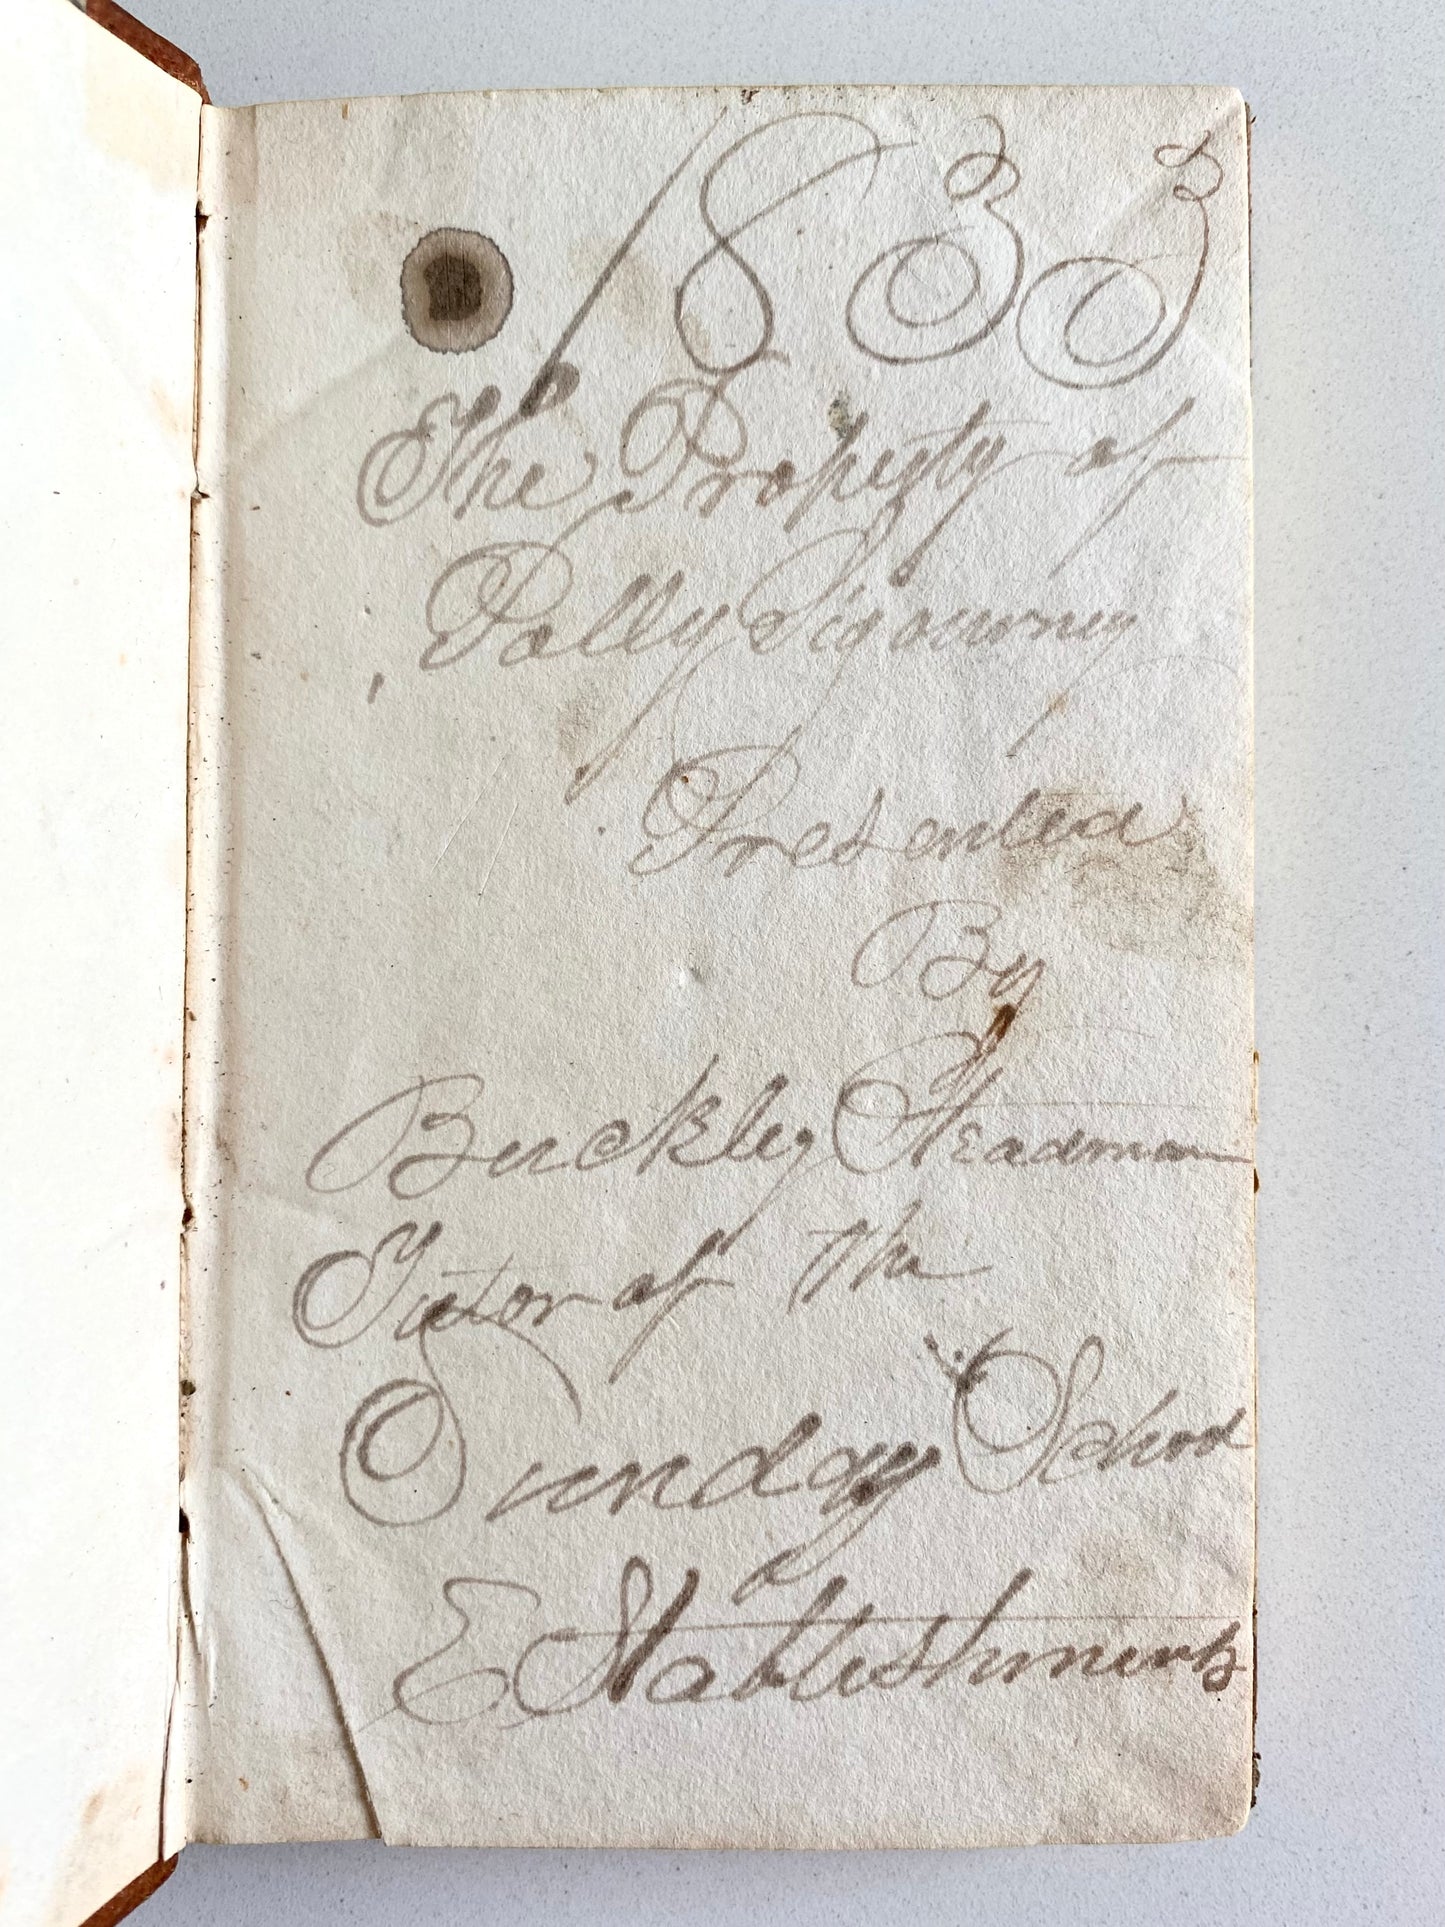 1833
The Property of
Polly Sigourney
Presented
By
Buckley Steadman
Tutor of the
Sunday School
Establishments